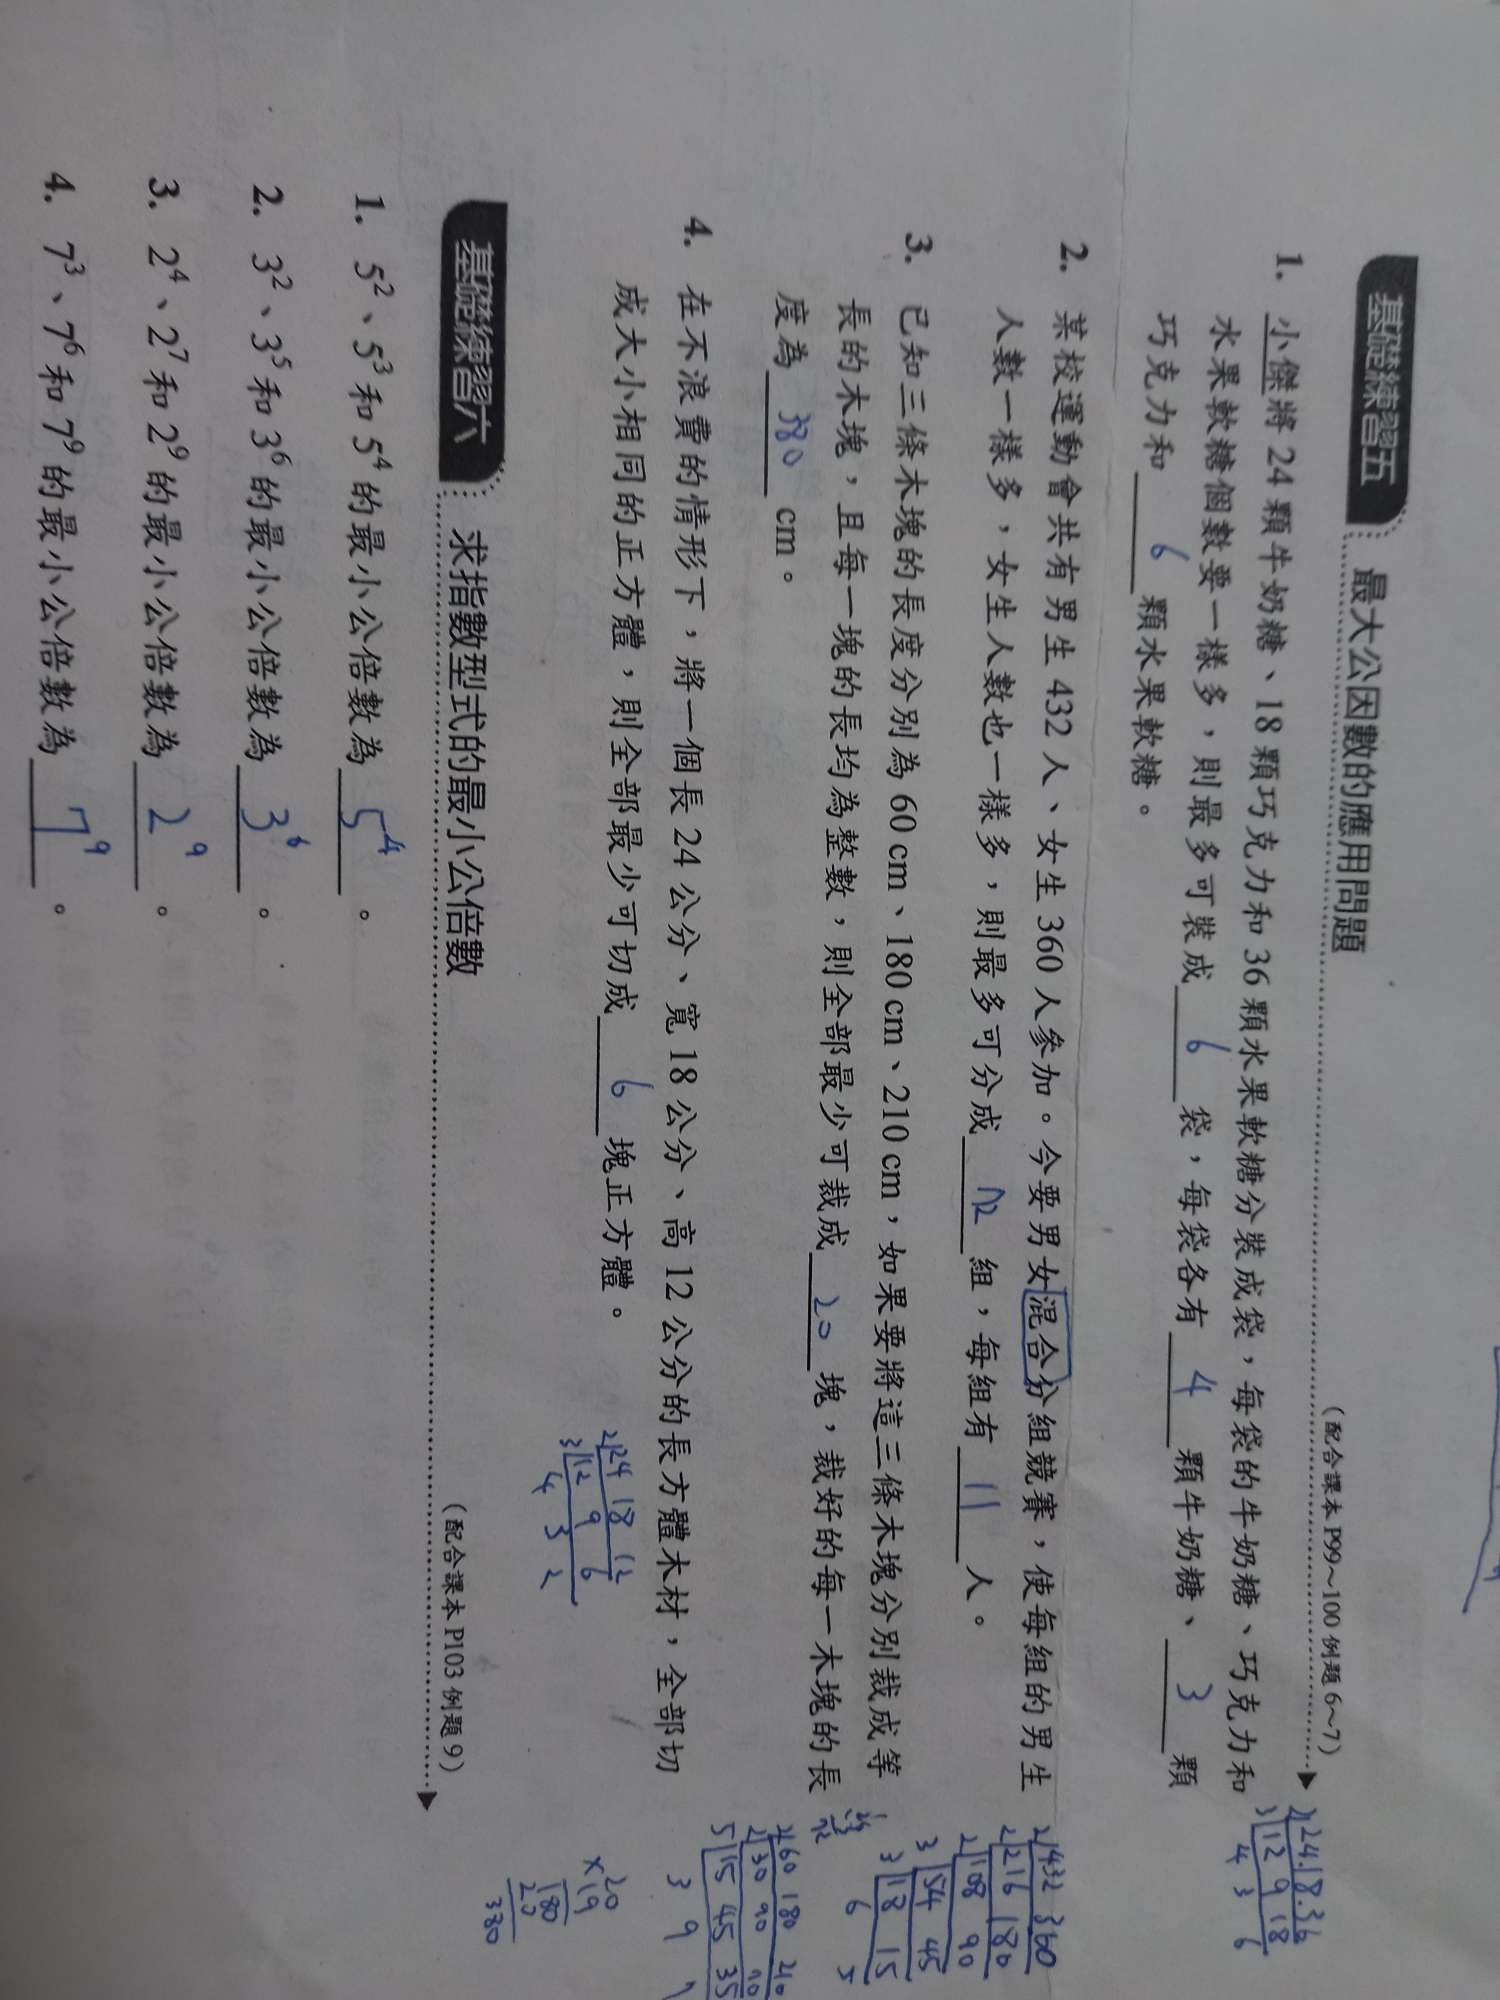 基礎練習五 最大公因數的應用問題 (配合課本 P99～100 例題 6～7)
1. 小傑將 24 顆牛奶糖、18 顆巧克力和 36 顆水果軟糖分裝成袋，每袋的牛奶糖、巧克力和
水果軟糖個數要一樣多，則最多可裝成 6 袋，每袋各有 4 顆牛奶糖、 3 顆
巧克力和 6 顆水果軟糖。
2|24.18.36
3|12 9 18
4 3 6
2. 某校運動會共有男生 432 人、女生 360 人參加。今要男女混合分組競賽，使每組的男生
人數一樣多，女生人數也一樣多，則最多可分成 72 組，每組有 11 人。
2|432 360
2|216 180
2|108 90
3|54 45
3|18 15
6 5
3. 已知三條木塊的長度分別為 60 cm、180 cm、210 cm，如果要將這三條木塊分別裁成等
長的木塊，且每一塊的長均為整數，則全部最少可裁成 20 塊，裁好的每一木塊的長
度為 380 cm。
72
2|60 180 210
2|30 90
5|15 45 35
3 9 7
20
×19
180
20
380
4. 在不浪費的情形下，將一個長 24 公分、寬 18 公分、高 12 公分的長方體木材，全部切
成大小相同的正方體，則全部最少可切成 6 塊正方體。
2|24 18 12
3|12 9 6
4 3 2
基礎練習六 求指數型式的最小公倍數 (配合課本 P103 例題 9)
1. 5²、5³ 和 5⁴ 的最小公倍數為 5⁴ 。
2. 3²、3⁵ 和 3⁶ 的最小公倍數為 3⁶ 。
3. 2⁴、2⁷ 和 2⁹ 的最小公倍數為 2⁹ 。
4. 7³、7⁶ 和 7⁹ 的最小公倍數為 7⁹ 。